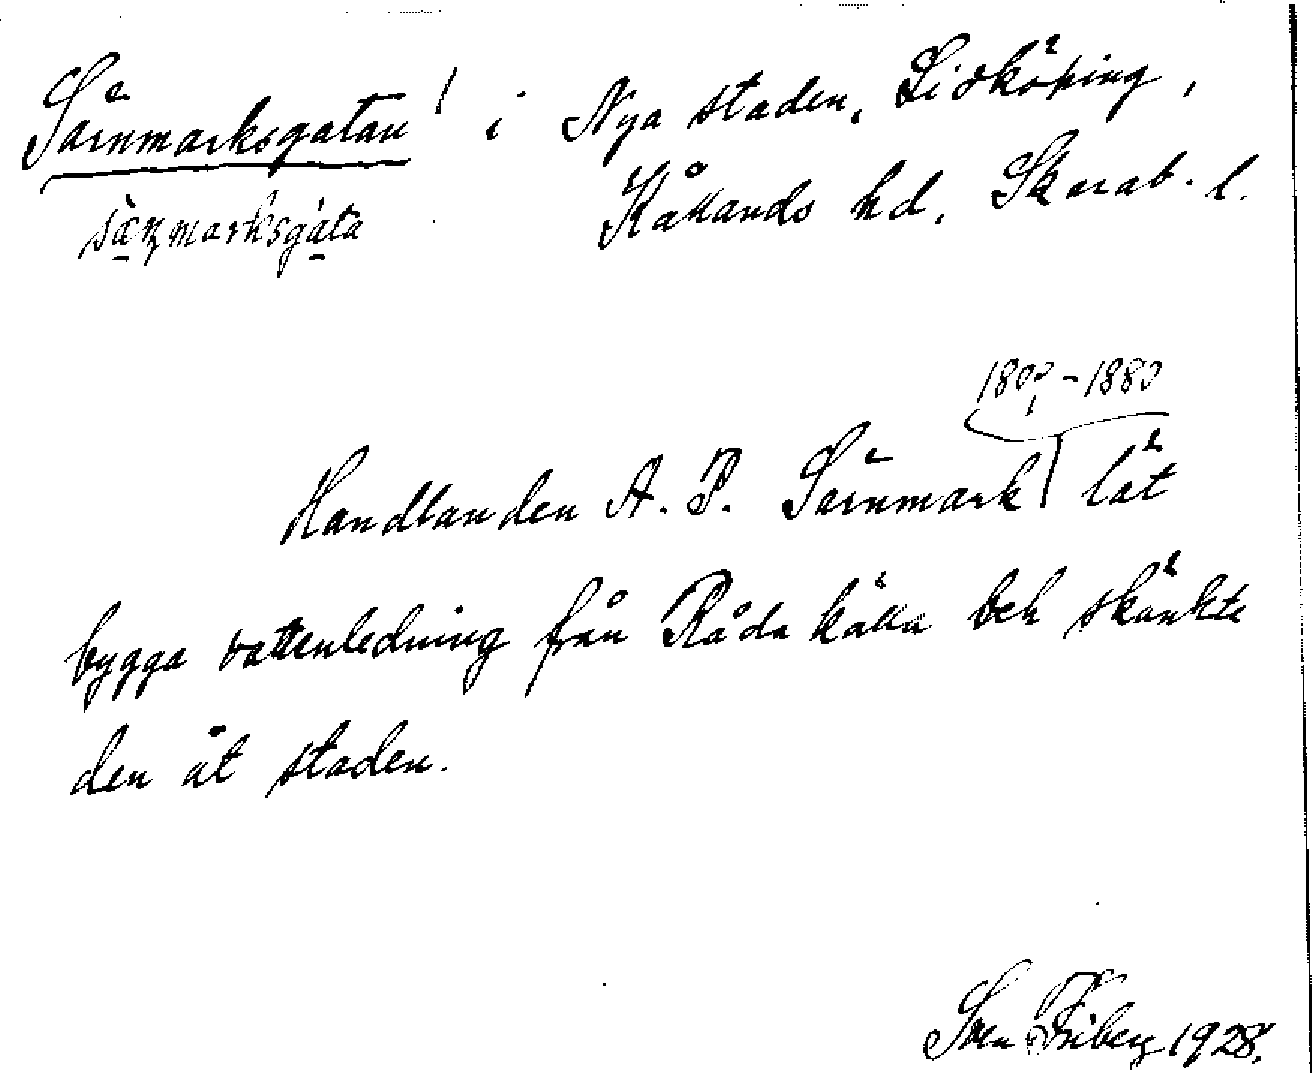 Särnmarksgatan i Nya staden, Lidköping,
Kållands hd, Skarab. l.
1809-1880
Handlanden A. P. Särnmark lät
bygga vattenledning från Råda källa och skänkte
den åt staden.
Sven Friberg 1928.